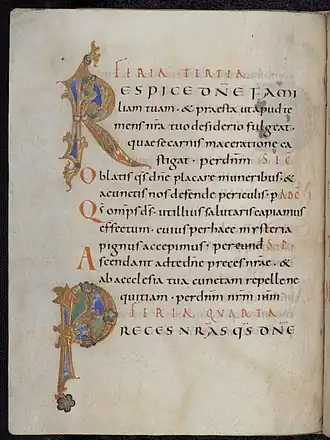 FERIA TERTIA
RESPICE DNE FAMI
liam tuam · & praesta utapud te
mens nra tuo desiderio fulgeat ·
quae se carnis maceratione ca
stigat · per dnm · S · I · E
Oblatis qs dne placare muneribus · &
a cunctis nos defende periculis · p AD CO
Qs omps ds · ut illius salutaris capiamus
effectum · cuius per haec mysteria
pignus accepimus · per eund S P
Ascendant ad te dne preces nrae · &
ab aecclesia tua cunctam repelle ne
quitiam · per dnm nrm ihm
FERIA QUARTA
PRECES NRAS QS DNE